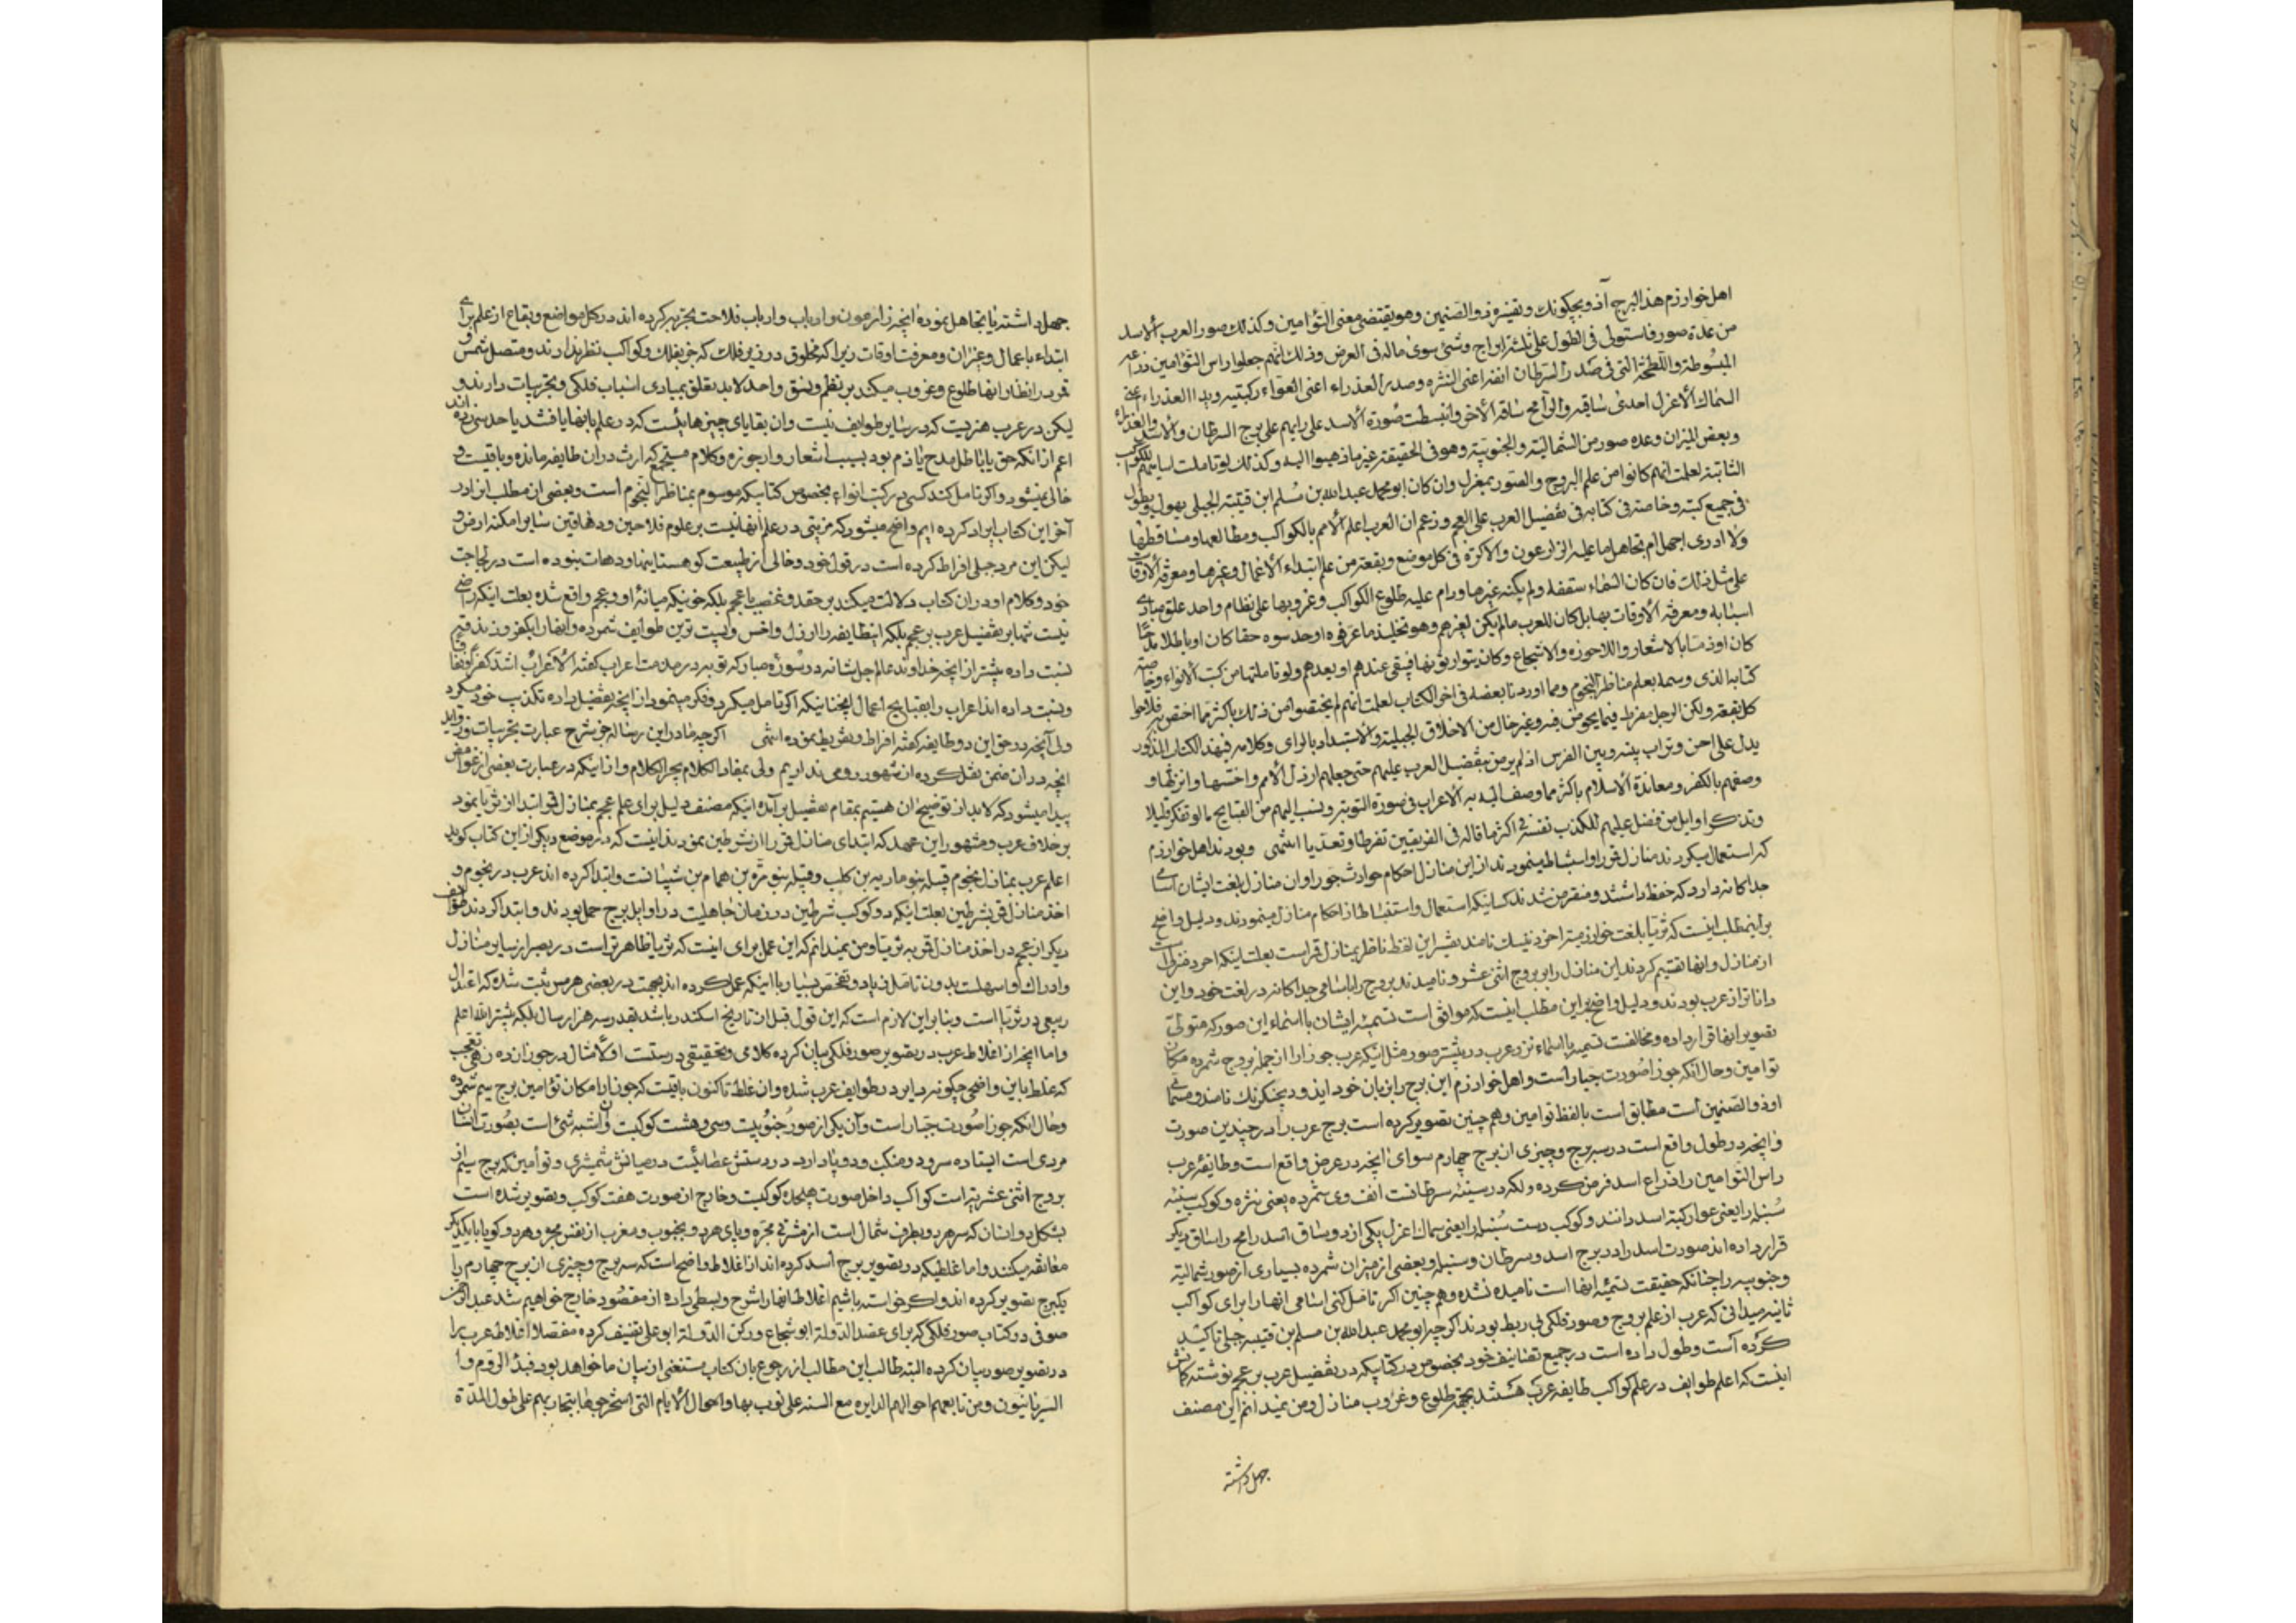 اهل خوارزم هذا البرج آذوبجکونک وتفسیره ذو الصنمین وهو یقتضی معنی التوٴامین وکذلک صور العرب الاسد
من عدة صور فاستولی فی الطول علی ثلثة ابراج وشئ سوی ماله فی العرض وذلک انهم جعلوا راس التوٴامین ذراعه
المبسوطة واللطخة التی فی صدر السرطان انفه اعنی النثره وصدر العذراء اعنی العواء رکبتیه وید العذراء اعنی
السماک الاعزل احدی ساقیه والرامح ساقه الاخر وانبسطت صورة الاسد علی رایهم علی برج السرطان والاسد والعذراء
وبعض المیزان وعده صور من الشمالیة والجنوبیة وهو فی الحقیقة غیر ما ذهبوا الیه وکذلک لو تاملت اسامیهم للکواکب
الثابتة لعلمت انهم کانوا من علم البروج والصور بمعزل وان کان ابو محمد عبدالله بن مسلم ابن قتیبة الجبلی یهول ویطول
فی جمیع کتبه وخاصته فی کتابه فی تفضیل العرب علی العجم وزعم ان العرب اعلم الامم بالکواکب ومطالعها ومساقطها
ولا ادری اجهل ام تجاهل ما علیه الزارعون والاکرة فی کل موضع وبقعة من علم ابتداء الاعمال وغیرها ومعرفة الاوقات
علی مثل ذلک فان کان السماء سقفه ولم یکنه غیرها ورام علیه طلوع الکواکب وغروبها علی نظام واحد علق مبادی
اسبابه ومعرفة الاوقات بها بل کان للعرب مالم یکن لغیرهم وهو تخلید ما عرفوه او حدسوه حقا کان او باطلا مدحا
کان او ذما بالاشعار واللاجوزه والاسجاع وکان یتوارثونها فیبقی عندهم او بعدهم ولو تاملتها من کتب الانواء وخاصة
کتابه الذی وسمه بعلم مناظر النجوم ومما اوردنا بعضه فی اخر الکتاب لعلمت انهم لم یختصوا من ذلک باکثر مما اختص به فلاحوا
کل بقعة ولکن الرجل مفرط فیما یخوض فیه وغیر خال من الاخلاق الجبلیة والاستبداد بالرای وکلامه فی هذا الکتاب المذکور
یدل علی احن وتراب بینه وبین الفرس اذ لم یرض بتفضیل العرب علیهم حتی جعلهم ارذل الامم واخسها وانزلها و
وصفهم بالکفر ومعاندة الاسلام باکثر مما وصف الله به الاعراب فی صورة التوبة ونسب الیهم من القبایح ما لو تفکر قلیلا
وتذکر اوایل من فضل علیهم لکذب نفسه فی اکثر ما قاله فی الفریقین تفرطا وتعدیا انتهی وبودند اهل خوارزم
که استعمال میکردند منازل قمر را واستنباط مینمودند از این منازل احکام حوادث جو را وان منازل بلغت ایشان اسامی
جداگانه دارد که حفظ داشتند ومنقرض شدند کسانیکه استعمال واستنباط از احکام منازل مینمودند ودلیل واضح
بر اینمطلب اینست که ثریا بلغت خوارزمیه اخرد نیسک نامند تفسیر این لفظ ناظر بمنازل قمر است بعلت اینکه اخر د منزل است
از منازل وانها تقسیم کردند این منازل را بر بروج اثنی عشر ونامیدند بروج را باسامی جداکانه در لغت خود واین
داناتر از عرب بودند ودلیل واضح بر این مطلب اینست که موافق است تسمیه ایشان با اسماء این صور که متولی
تصویر انها قرار داده ومخالفت تسمیه با اسماء نزد عرب در بیشتر صور مثل اینکه عرب جوزا را از جمله بروج شمرده مکان
توامین وحال انکه جوزا صورت جبار است واهل خوارزم این برج را بزبان خود اذوبجکرنک نامند ومعنی
او ذو الصنمین است مطابق است با لفظ توامین وهمچنین تصویر کرده است برج عرب را در چندین صورت
وانچه در طول واقع است در سه برج وچیزی از برج چهارم سوای انچه در عرض واقع است وطایفه عرب
راس التوامین را ذراع اسد فرض کرده ولکه در سینه سرطانست انف وی شمرده یعنی نثره وکوکب سینه
سنبله را یعنی عوا رکبة اسد دانند وکوکب دست سنبله را یعنی سماک اعزل یکی از دو ساق اسد رامح را ساق دیکر
قرار داده اند صورت اسد را در برج اسد وسرطان وسنبله وبعضی از میزان شمرده بسیاری از صور شمالیة
وجنوبیه را چنانکه حقیقت تسمیه انها است نامیده نشده وهمچنین اکر تامل کنی اسامی انها را برای کواکب
ثابته میدانی که عرب از علم بروج وصور فلکی بی ربط بودند اکرچه ابو محمد عبدالله بن مسلم بن قتیبه جبلی تاکید
کرده است وطول داده است در جمیع تصانیف خود بخصوص در کتابیکه در تفضیل عرب بر عجم نوشته کانش
اینست که اعلم طوایف در علم کواکب طایفه عرب هستند بجهة طلوع وغروب منازل ومن نمیدانم این مصنف
جهل داشته
جهل داشته یا تجاهل نموده انچه زارعون وارباب وارباب فلاحت تجربه کرده اند در کل مواضع وبقاع از علم برای
ابتداء باعمال وغیر ان ومعرفت اوقات زیرا که مخلوق در زیر فلک که جز بفلک وکواکب نظر ندارند ومتصل شمس و
قمر در انظار انها طلوع وغروب میکند بر نظم ونسق واحد لابد تعلق بمبادی اسباب فلکی وتجربیات دارند و
لیکن در عرب هنریست که در سایر طوایف نیست وان بقایای چیزهائیست که در علم بانها یافتند یا حدس زده اند
اعم از انکه حق یا باطل مدح یا ذم بود بسبب اشعار وارجوزه وکلام مسجع که ارث در ان طایفه مانده وباقیست و
خالی نمیشود واکر تامل کند کسی در کتب انواء بخصوص کتابیکه موسوم بمناظر النجوم است وبعضی از مطلب انرا در
آخر این کتاب ایراد کرده ایم واضح میشود که مزیتی در علم انها نیست بر علوم فلاحین ودهاقین سایر امکنه ارض و
لیکن این مرد جبلی افراط کرده است در قول خود وخالی از طبیعت کوهستانیها ودهات نبوده است در لجاجت
خود وکلام او در ان کتاب دلالت میکند بر حقد وغضب با عجم بلکه خونیکه میانه او وعجم واقع شده بعلت اینکه راضی
نیست تنها بر تفضیل عرب بر عجم بلکه اینطایفه را ارذل واخس وپست ترین طوایف شمرده وانها را بکفر وزندقه
نسبت داده بیشتر از انچه خداوند عالم جل شانه در سوره مبارکه توبه در مذمت اعراب کفته الاعراب اشد کفرا ونفاقا
ونسبت داده انذ اعراب را بقبایح اعمال انچنانیکه اکر تامل میکرد وفکر مینمود از انچه تفضیل داده تکذیب خود میکرد
ولی آنچه در حق این دو طایفه کفته افراط وتفریط نموده انتهی اکرچه ما در این رساله جز شرح عبارت تجربیات وزواید
انچه در ان ضمن نقل کرده از شهور رومی نداریم ولی بمفاد الکلام یجر الکلام واز اینکه در عبارت بعضی از غوامض
پیدا میشود که لابد از توضیح ان هستیم بمقام تفصیل بر آمده اینکه مصنف دلیل برای علم عجم بمنازل قمر ابتدا از ثریا نمود
بر خلاف عرب ومشهور این عهد که ابتدای منازل قمر را از شرطین نمودند اینست که در موضع دیکر از این کتاب کوید
اعلم عرب بمنازل نجوم قبیله بنو ماریه بن کلب وقبیله بنو مره بن همام بن شیبانست وابتدا کرده اند عرب در نجوم و
اخذ منازل قمر بشرطین بعلت اینکه دو کوکب شرطین در زمان جاهلیت در اوایل برج حمل بودند وابتدا کردند طوایف
دیکر از عجم در اخذ منازل قمر به ثریا ومن نمیدانم که این عمل برای اینست که ثریا ظاهرتر است در بصر از سایر منازل
وادراک او اسهلست بدون تامل زیاد وتفحص بسیار یا اینکه عمل کرده اند بجهت در بعضی هرمس ثبت شده که اعتدال
ربیعی در ثریا است وبنا بر این لازم است که این قول قبل از تاریخ اسکندر باشد بقدر سه هزار سال بلکه بیشتر الله اعلم
واما انچه از اغلاط عرب در تصویر صور فلکی بیان کرده کلامی وتحقیقی درستست اولا مثال در جوزا زده زهی تعجب
که غلط باین واضحی چکونه دایر در طوایف عرب شده وان غلط تاکنون باقیست که جوزا را مکان توٴامین برج سیم شمرده
وحال انکه جوزا صورت جبار است وآن یکی از صور جنوبیست وسی وهشت کوکبست وان اشبه شئ است بصورت انسان
مردی است ایستاده سر ودو منکب ودو پا دارد در دستش عصائیست در میانش شمشیری وتوأمین که برج سیم از
بروج اثنی عشریه است کواکب داخل صورت هیجده کوکبست وخارج از صورت هفت کوکب وتصویر شده است
بشکل دو انسان که سر هر دو بطرف شمال است از مشرق مجره وپای هر دو بجنوب ومغرب از نفس مجره وهر دو کویا با یکدیکر
معانقه میکنند واما غلطیکه در تصویر برج اسد کرده اند از اغلاط واضح است که سه برج وچیزی از برج چهارم را
یکبرج تصویر کرده اند واکر خواسته باشیم اغلاط انها را شرح وبسطی داده از مقصود خارج خواهیم شد عبد الرحمن
صوفی در کتاب صور فلکی که برای عضد الدولة ابو شجاع ورکن الدولة ابو علی تصنیف کرده مفصلا اغلاط عرب را
در تصویر صور بیان کرده البته طالب این مطالب از رجوع بان کتاب مستغنی از بیان ما خواهد بود فبدا الروم وا
السریانیون ومن تابعهم احوالهم الدایره مع السنه علی نوب بها واحوال الایام التی استخرجوها بتجاربهم علی طول المدة